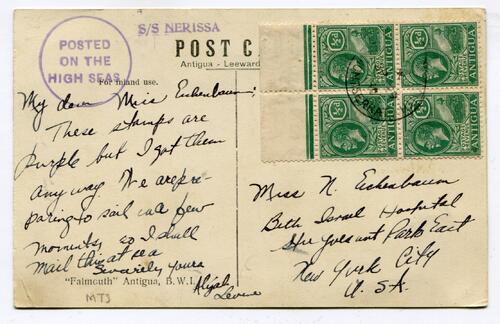 S/S NERISSA
POSTED
ON THE
HIGH SEAS
POST CA
Antigua - Leeward
For inland use.
My dear Miss Eichenbaum:
These stamps are
purple but I got them
any way. We are pre-
paring to sail in a few
moments, so I shall
mail this at sea
Sincerely yours
Levine
"Falmouth" Antigua, B.W.I.
MTJ
½d
ANTIGUA
½d
ANTIGUA
½d
ANTIGUA
½d
ANTIGUA
Miss N. Eichenbaum
Beth Israel Hospital
Stuyvesant Park East
New York City
U.S.A.